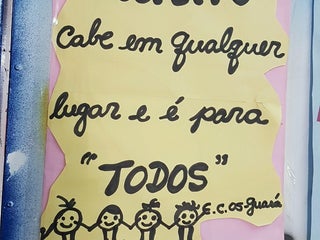 Cabe em qualquer
lugar e é para
"TODOS"
E.C. 05-Guará